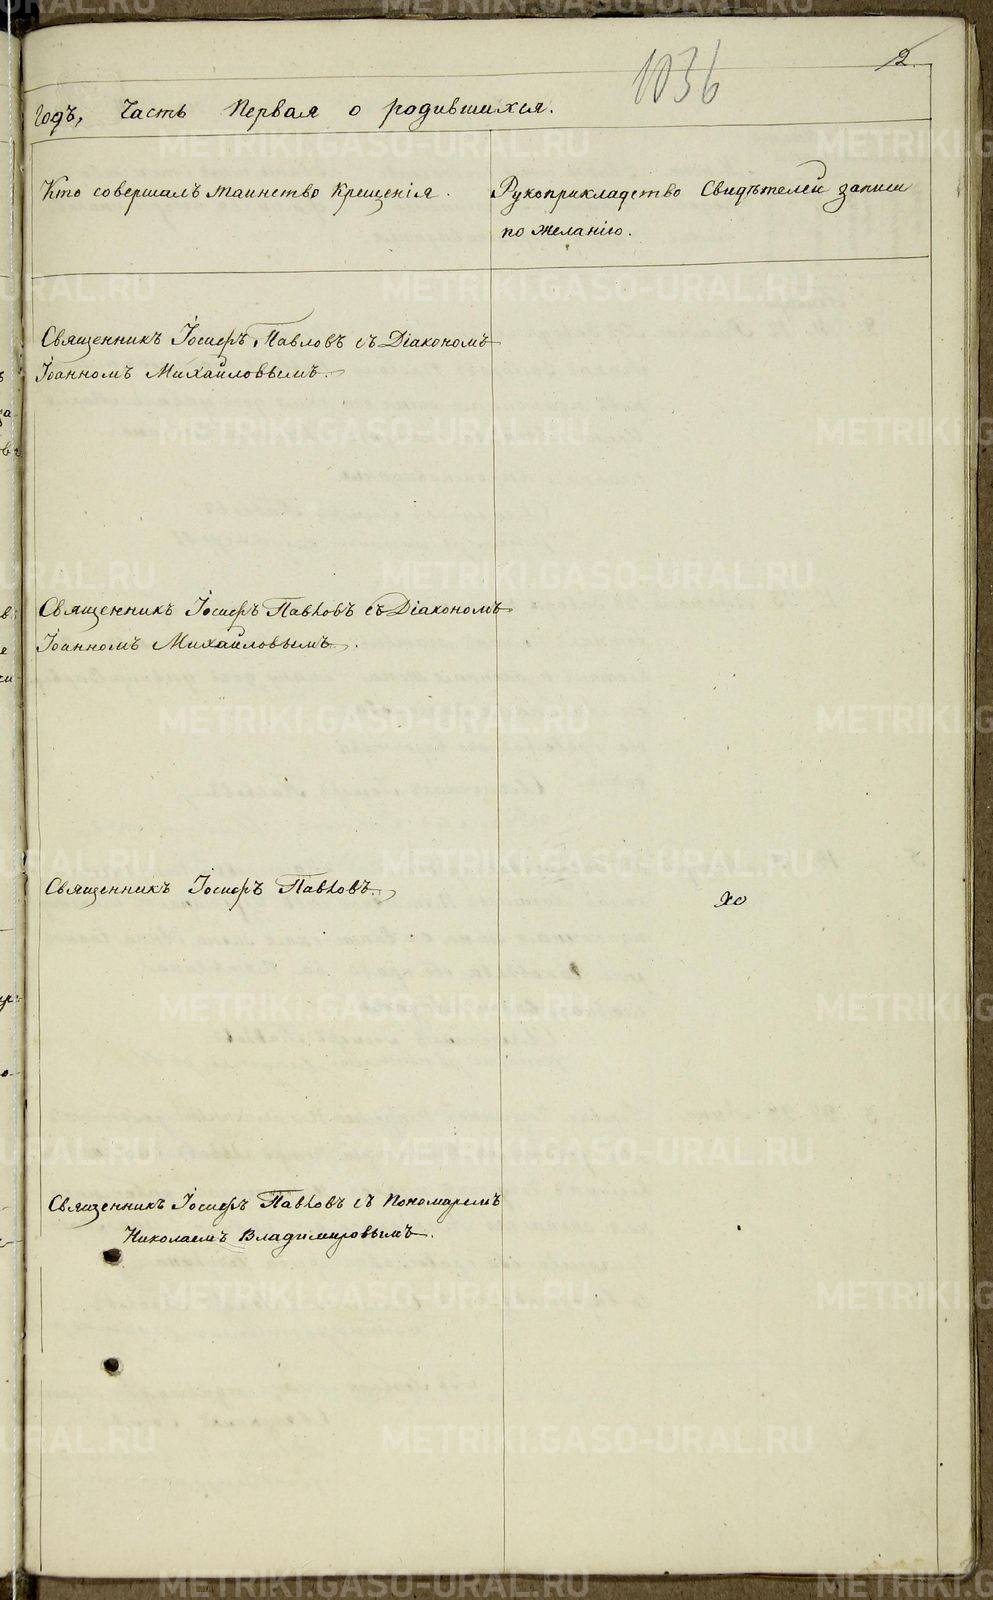 1036
2.
годъ, Часть Первая о родившихся.
Кто совершалъ таинство Крещенія.
Рукоприкладство Свидѣтелей записи
по желанію.
Священникъ Іосифъ Павловъ съ Діакономъ
Іоанномъ Михайловымъ.
Священникъ Іосифъ Павловъ съ Діакономъ
Іоанномъ Михайловымъ.
Священникъ Іосифъ Павловъ.
Священникъ Іосифъ Павловъ съ Пономаремъ
Николаемъ Владимировымъ.
METRIKI.GASO-URAL.RU